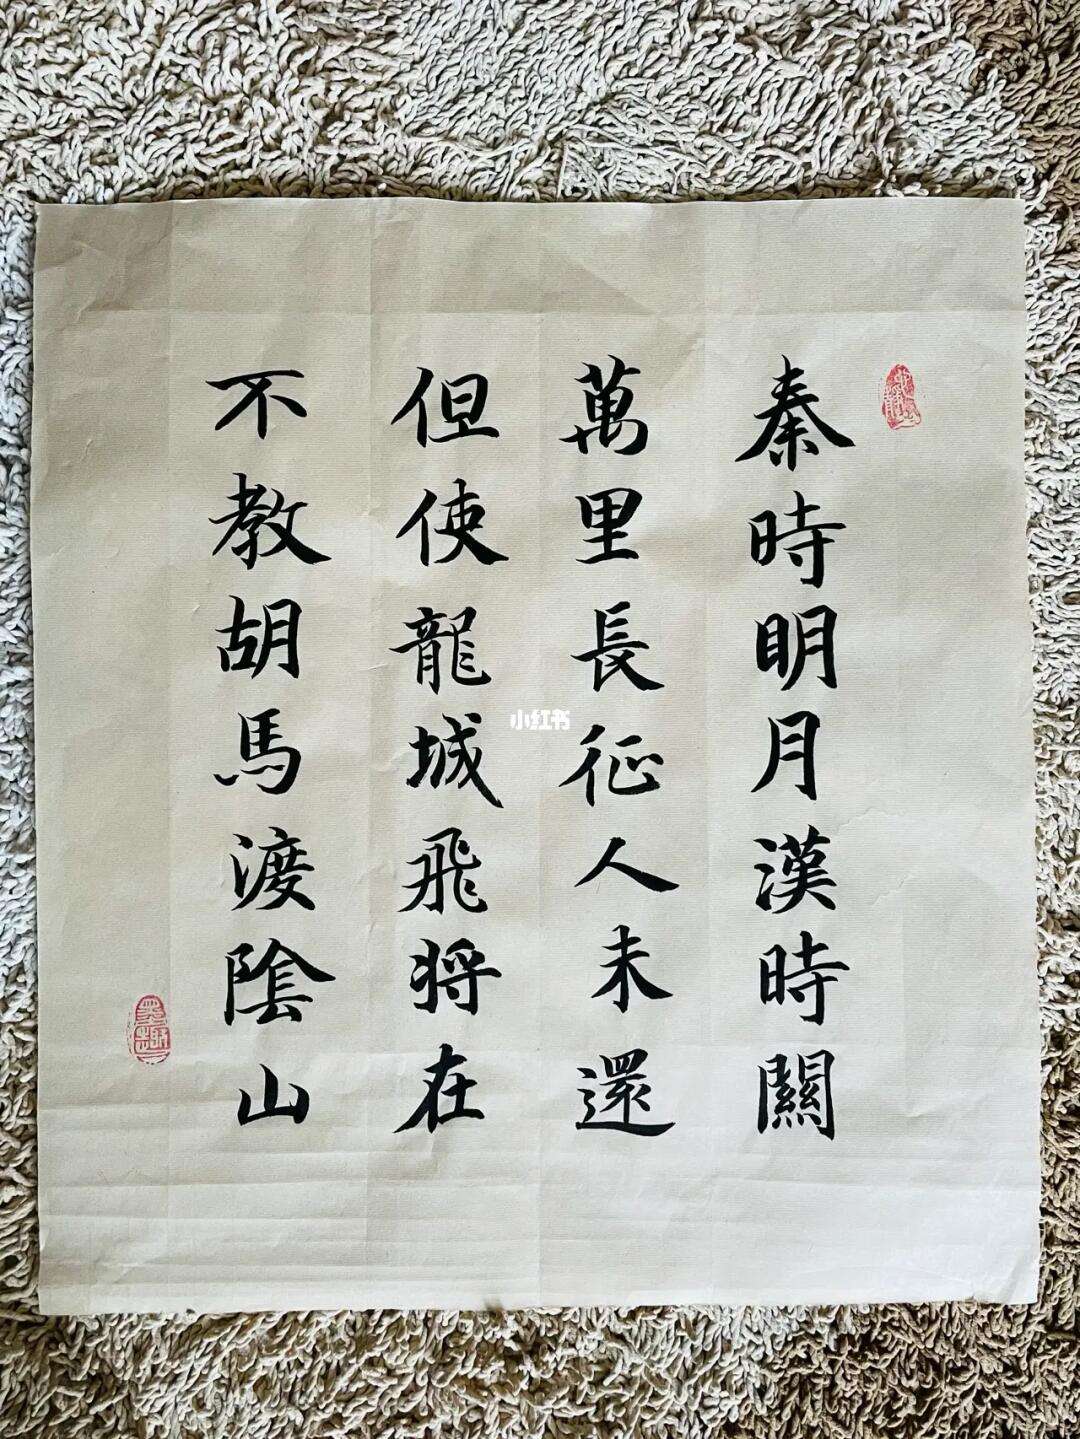 秦時明月漢時關
萬里長征人未還
但使龍城飛将在
不教胡馬渡陰山
小红书